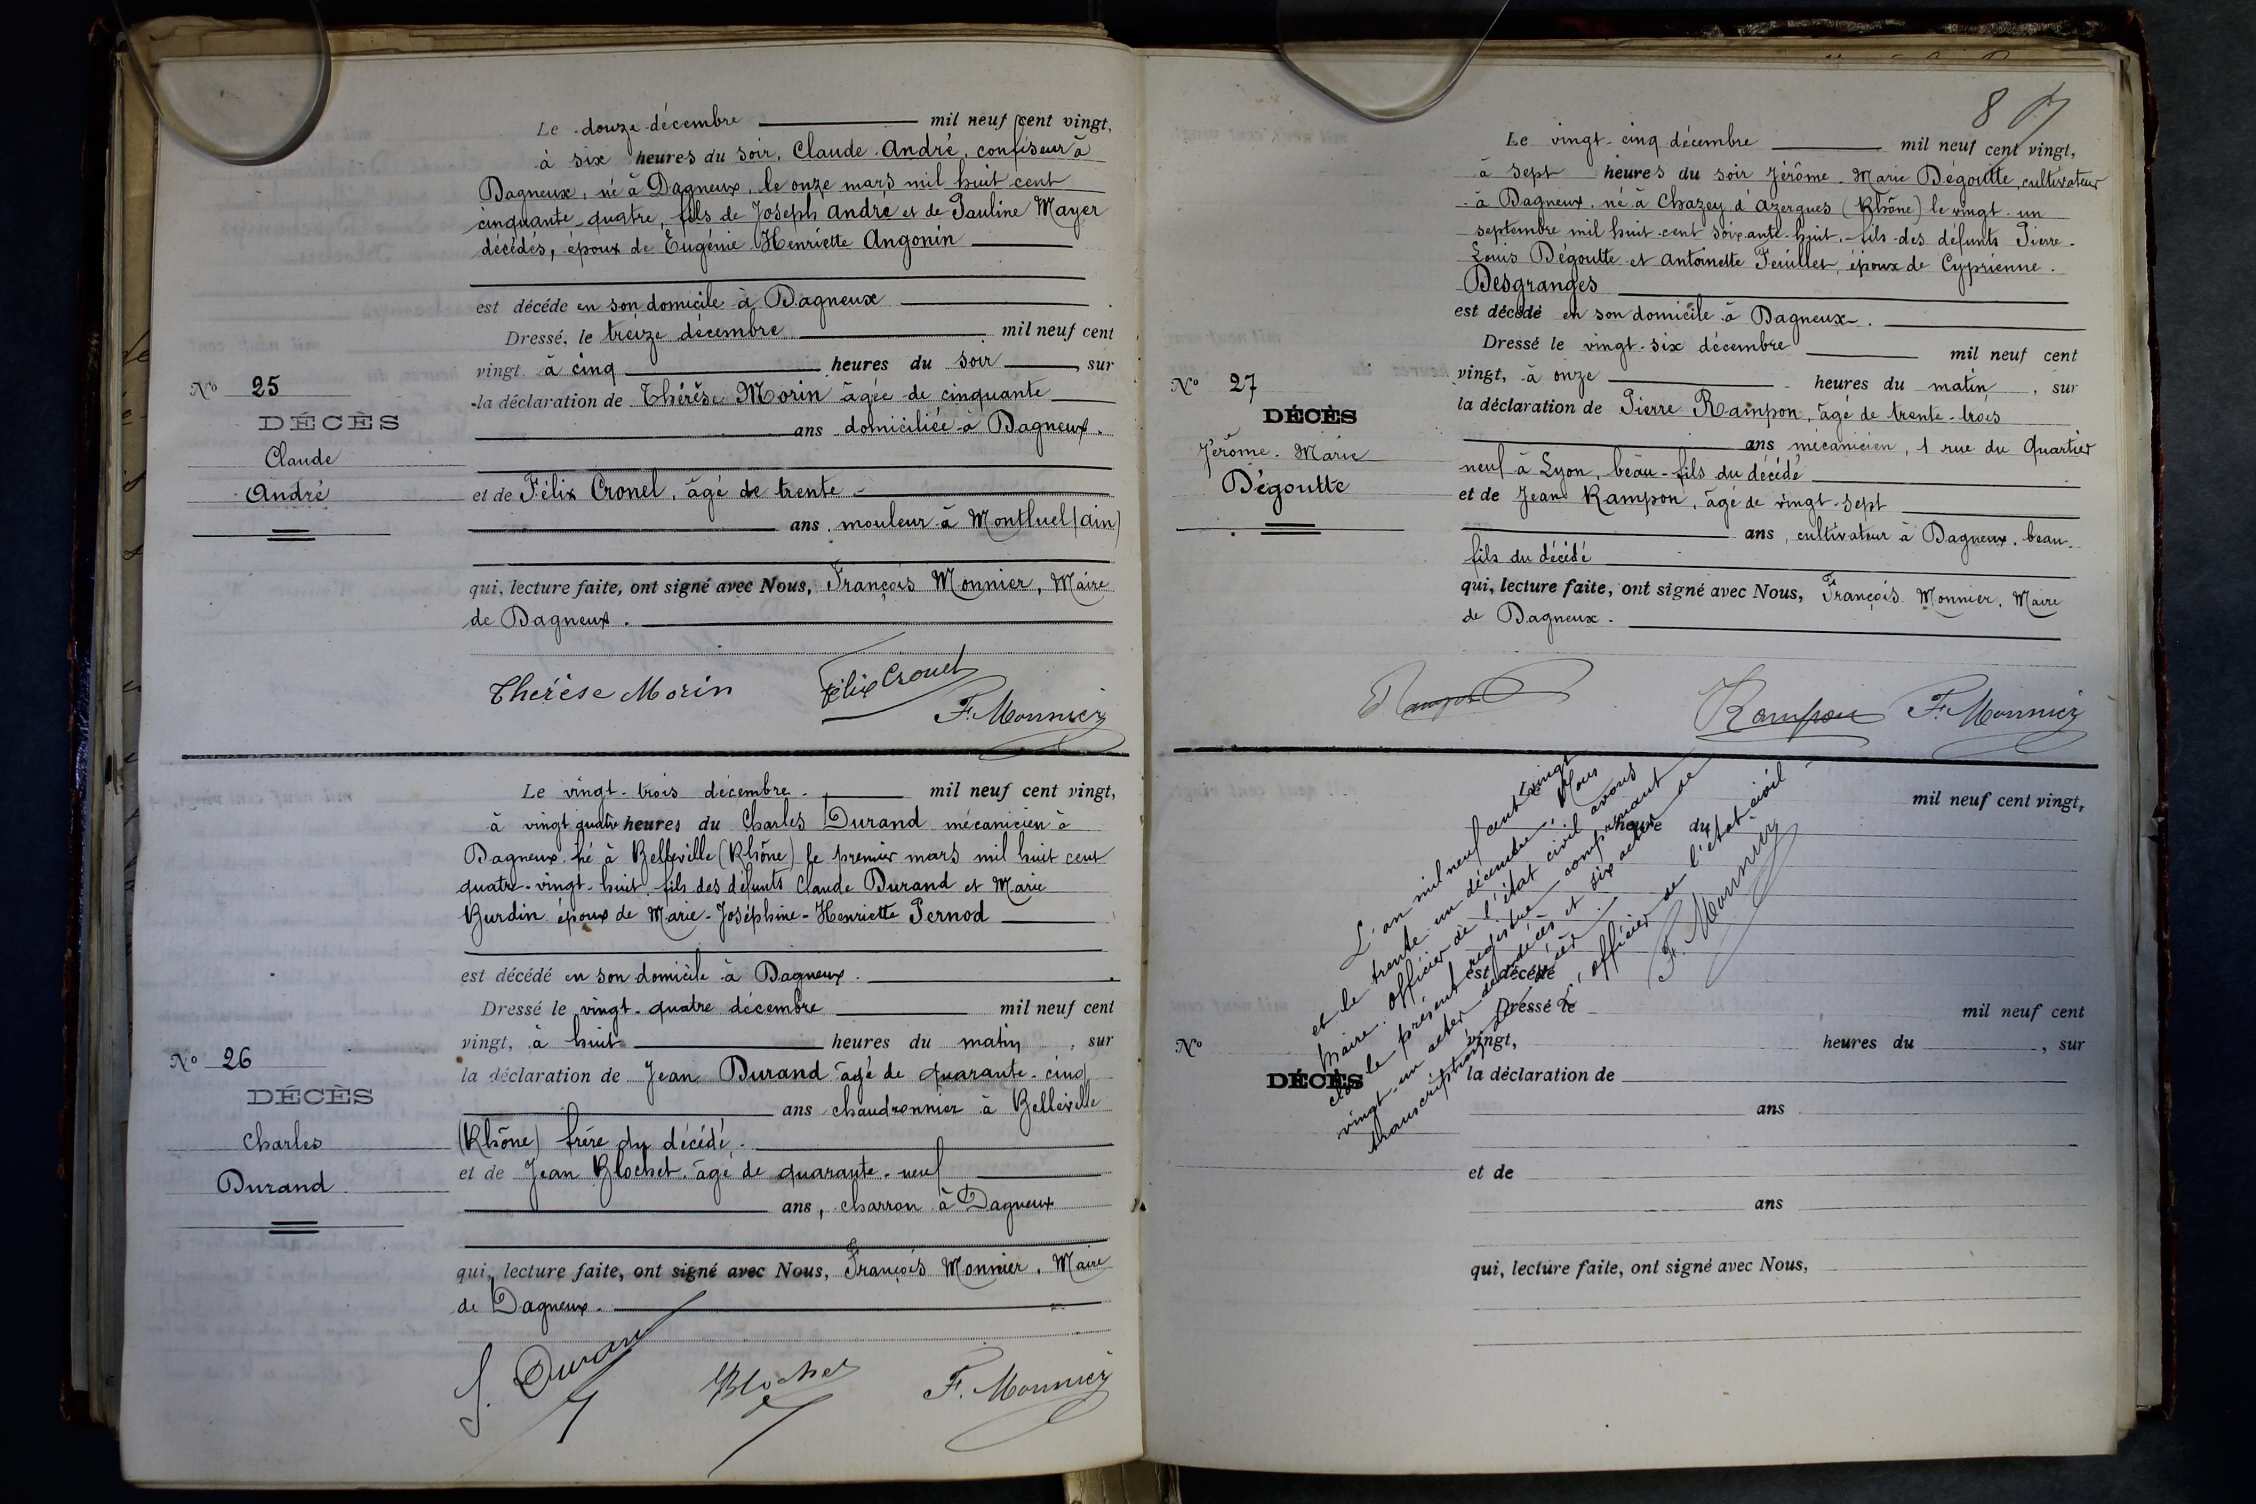 Le douze décembre mil neuf cent vingt,
à six heures du soir, Claude André, confiseur à
Dagneux, né à Dagneux, le onze mars mil huit cent
cinquante quatre, fils de Joseph André et de Pauline Mayer
décédés, époux de Eugénie Henriette Angonin
est décédé en son domicile à Dagneux
Dressé, le treize décembre mil neuf cent
vingt à cinq heures du soir, sur
la déclaration de Thérèse Morin âgée de cinquante
ans domiciliée à Dagneux.
et de Félix Cronel, âgé de trente
ans, mouleur à Montluel (Ain)
qui, lecture faite, ont signé avec Nous, François Monnier, Maire
de Dagneux.
Thérèse Morin Félix Cronel
F. Monnier
N° 25
DÉCÈS
Claude
André
Le vingt-trois décembre mil neuf cent vingt,
à vingt quatre heures du Charles Durand mécanicien à
Dagneux né à Belleville (Rhône) le premier mars mil huit cent
quatre-vingt-huit, fils des défunts Claude Durand et Marie
Burdin époux de Marie-Joséphine-Henriette Pernod
est décédé en son domicile à Dagneux.
Dressé le vingt-quatre décembre mil neuf cent
vingt, à huit heures du matin, sur
la déclaration de Jean Durand âgé de quarante-cinq
ans chaudronnier à Belleville
(Rhône) frère du décédé.
et de Jean Blochet, âgé de quarante-neuf
ans, charron à Dagneux
qui, lecture faite, ont signé avec Nous, François Monnier, Maire
de Dagneux.
J. Durand Blochet F. Monnier
N° 26
DÉCÈS
Charles
Durand
87
Le vingt-cinq décembre mil neuf cent vingt,
à sept heures du soir Jérôme-Marie Dégoutte, cultivateur
à Dagneux, né à Chazey d'Azergues (Rhône) le vingt-un
septembre mil huit-cent soixante-huit, fils des défunts Pierre-
Louis Dégoutte et Antoinette Feuillet, époux de Cyprienne
Desgranges
est décédé en son domicile à Dagneux.
Dressé le vingt-six décembre mil neuf cent
vingt, à onze heures du matin, sur
la déclaration de Pierre Rampon, âgé de trente-trois
ans mécanicien, 1 rue du Quartier
neuf à Lyon, beau-fils du décédé
et de Jean Rampon, âgé de vingt-sept
ans, cultivateur à Dagneux, beau-
fils du décédé
qui, lecture faite, ont signé avec Nous, François Monnier, Maire
de Dagneux.
Rampon Rampon F. Monnier
N° 27
DÉCÈS
Jérôme-Marie
Dégoutte
mil neuf cent vingt,
heure du
est décédé
Dressé le mil neuf cent
vingt, heures du , sur
la déclaration de
ans
et de
ans
qui, lecture faite, ont signé avec Nous,
N°
DÉCÈS
L'an mil neuf cent vingt
et le trente-un décembre, Nous
Maire, officier de l'état civil avons
clos le présent registre comprenant
vingt-un actes de décès et six actes de
transcription de décès.
L'officier de l'état-civil
F. Monnier